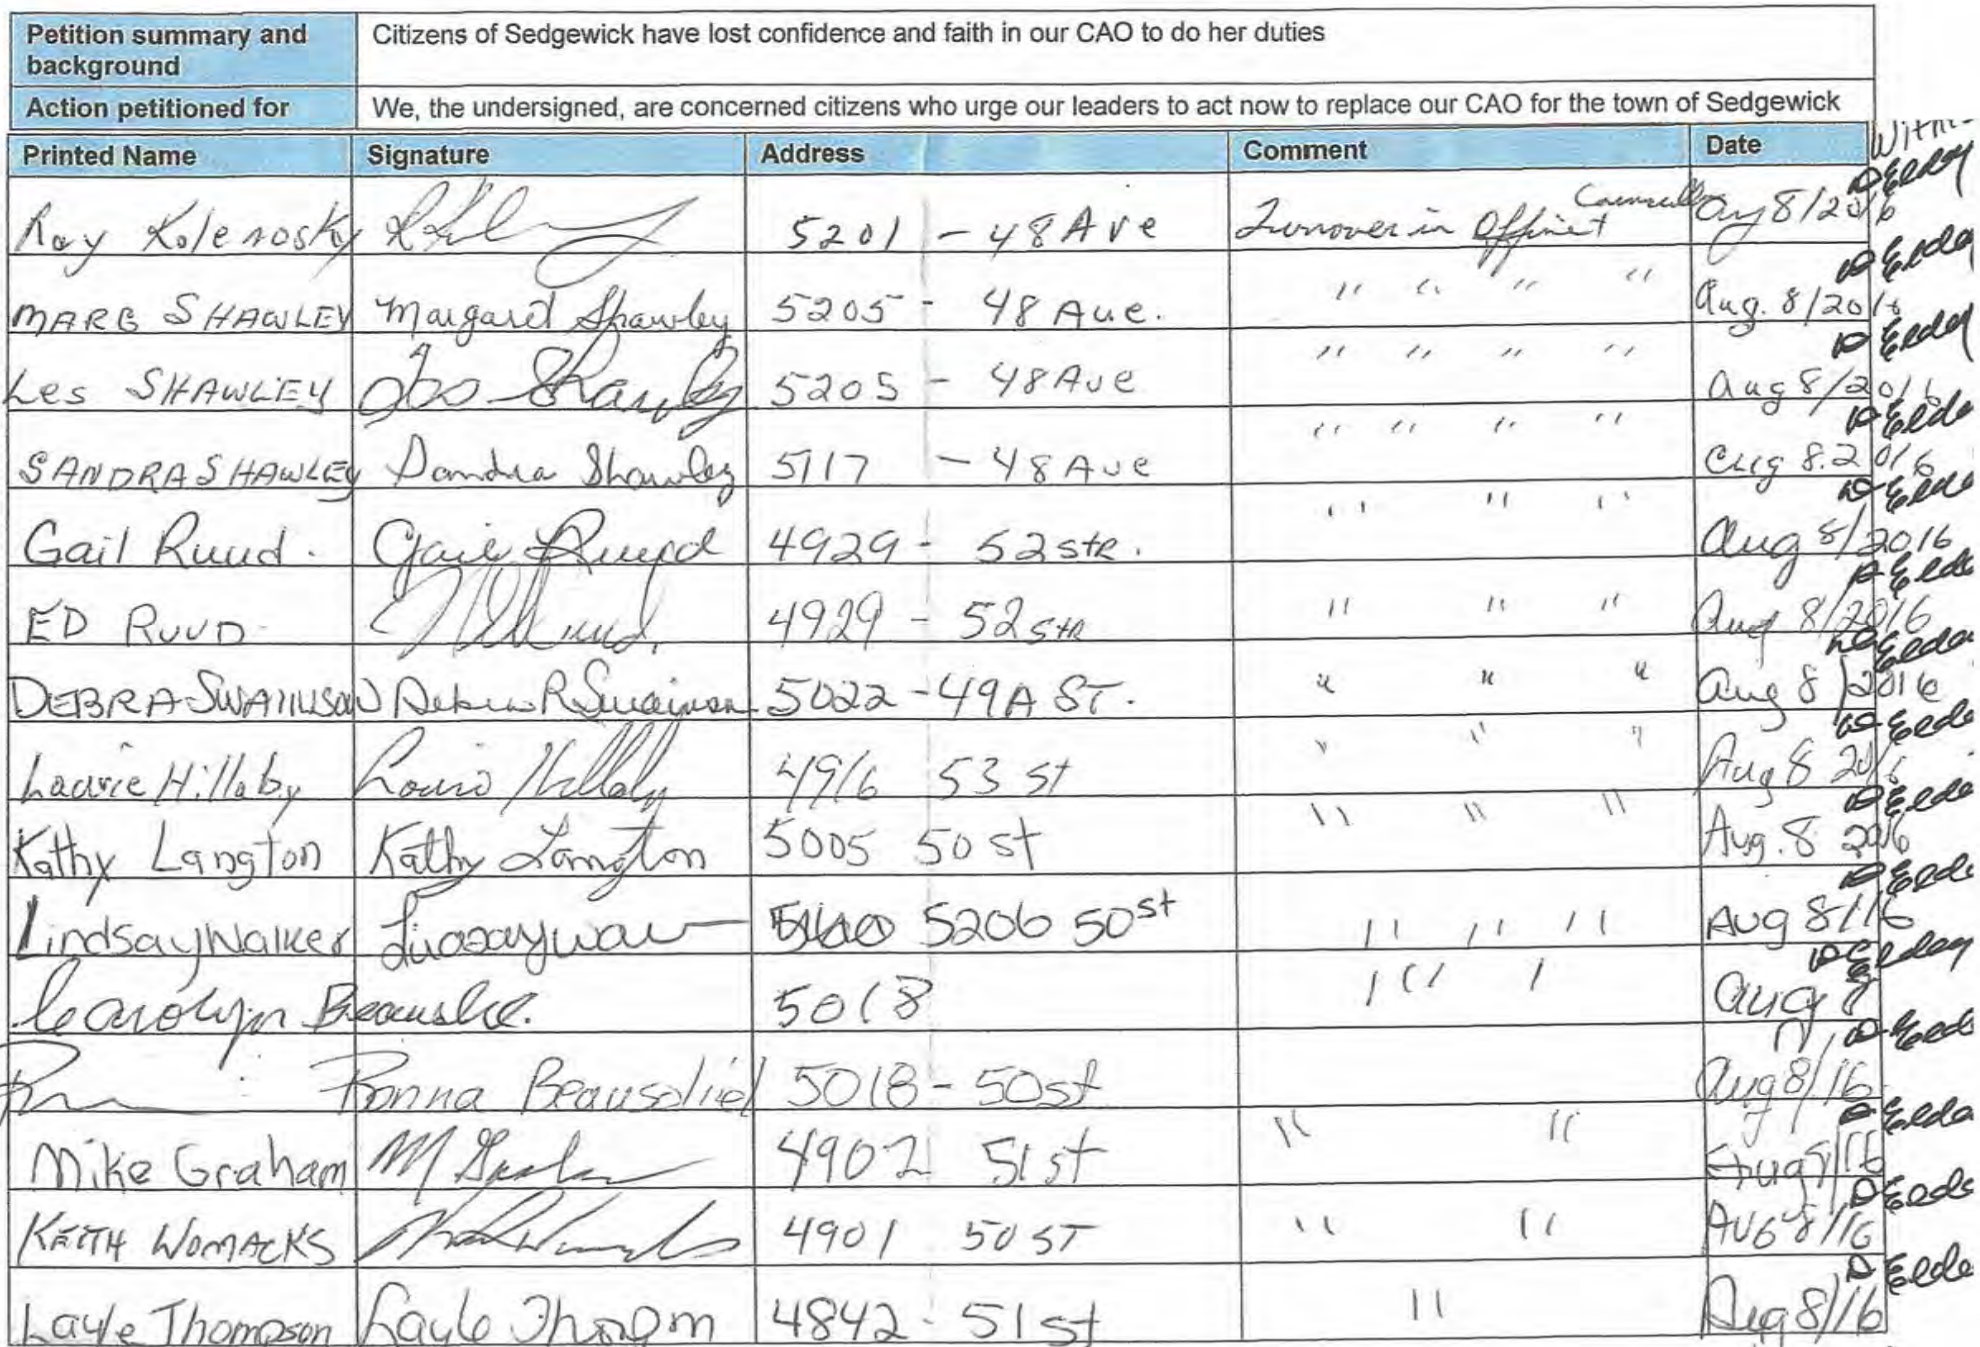 Petition summary and background Citizens of Sedgewick have lost confidence and faith in our CAO to do her duties
Action petitioned for We, the undersigned, are concerned citizens who urge our leaders to act now to replace our CAO for the town of Sedgewick
Printed Name Signature Address Comment Date
Roy Kolenosky 5201 - 48 Ave Turnover in Office + Councill Aug 8/2016
MARG SHAWLEY Margaret Shawley 5205 - 48 Ave. " " " " Aug. 8/2016
Les SHAWLEY Les Shawley 5205 - 48 Ave " " " " Aug 8/2016
SANDRA SHAWLEY Sandra Shawley 5117 - 48 Ave " " " " Aug 8.2016
Gail Ruud. Gail Ruud 4929 - 52 str. " " " Aug 8/2016
ED RUUD 4929 - 52 str " " " Aug 8/2016
DEBRA SWAINSON Debra R Swainson 5022 - 49A ST. " " " Aug 8/2016
Laurie Hillaby Laurie Hillaby 4916 53 st " " " Aug 8 2016
Kathy Langton Kathy Langton 5005 50 st " " " Aug. 8 2016
Lindsay Walker 5206 50st " " " Aug 8/16
Carolyn 5018 Aug 8
Ronna Beausoliel 5018 - 50st Aug 8/16
Mike Graham M Graham 4902 51 st " " Aug 8/16
KEITH WOMACKS 4901 50 ST " " AUG 8/16
Layle Thompson Layle 4842 - 51 st " Aug 8/16